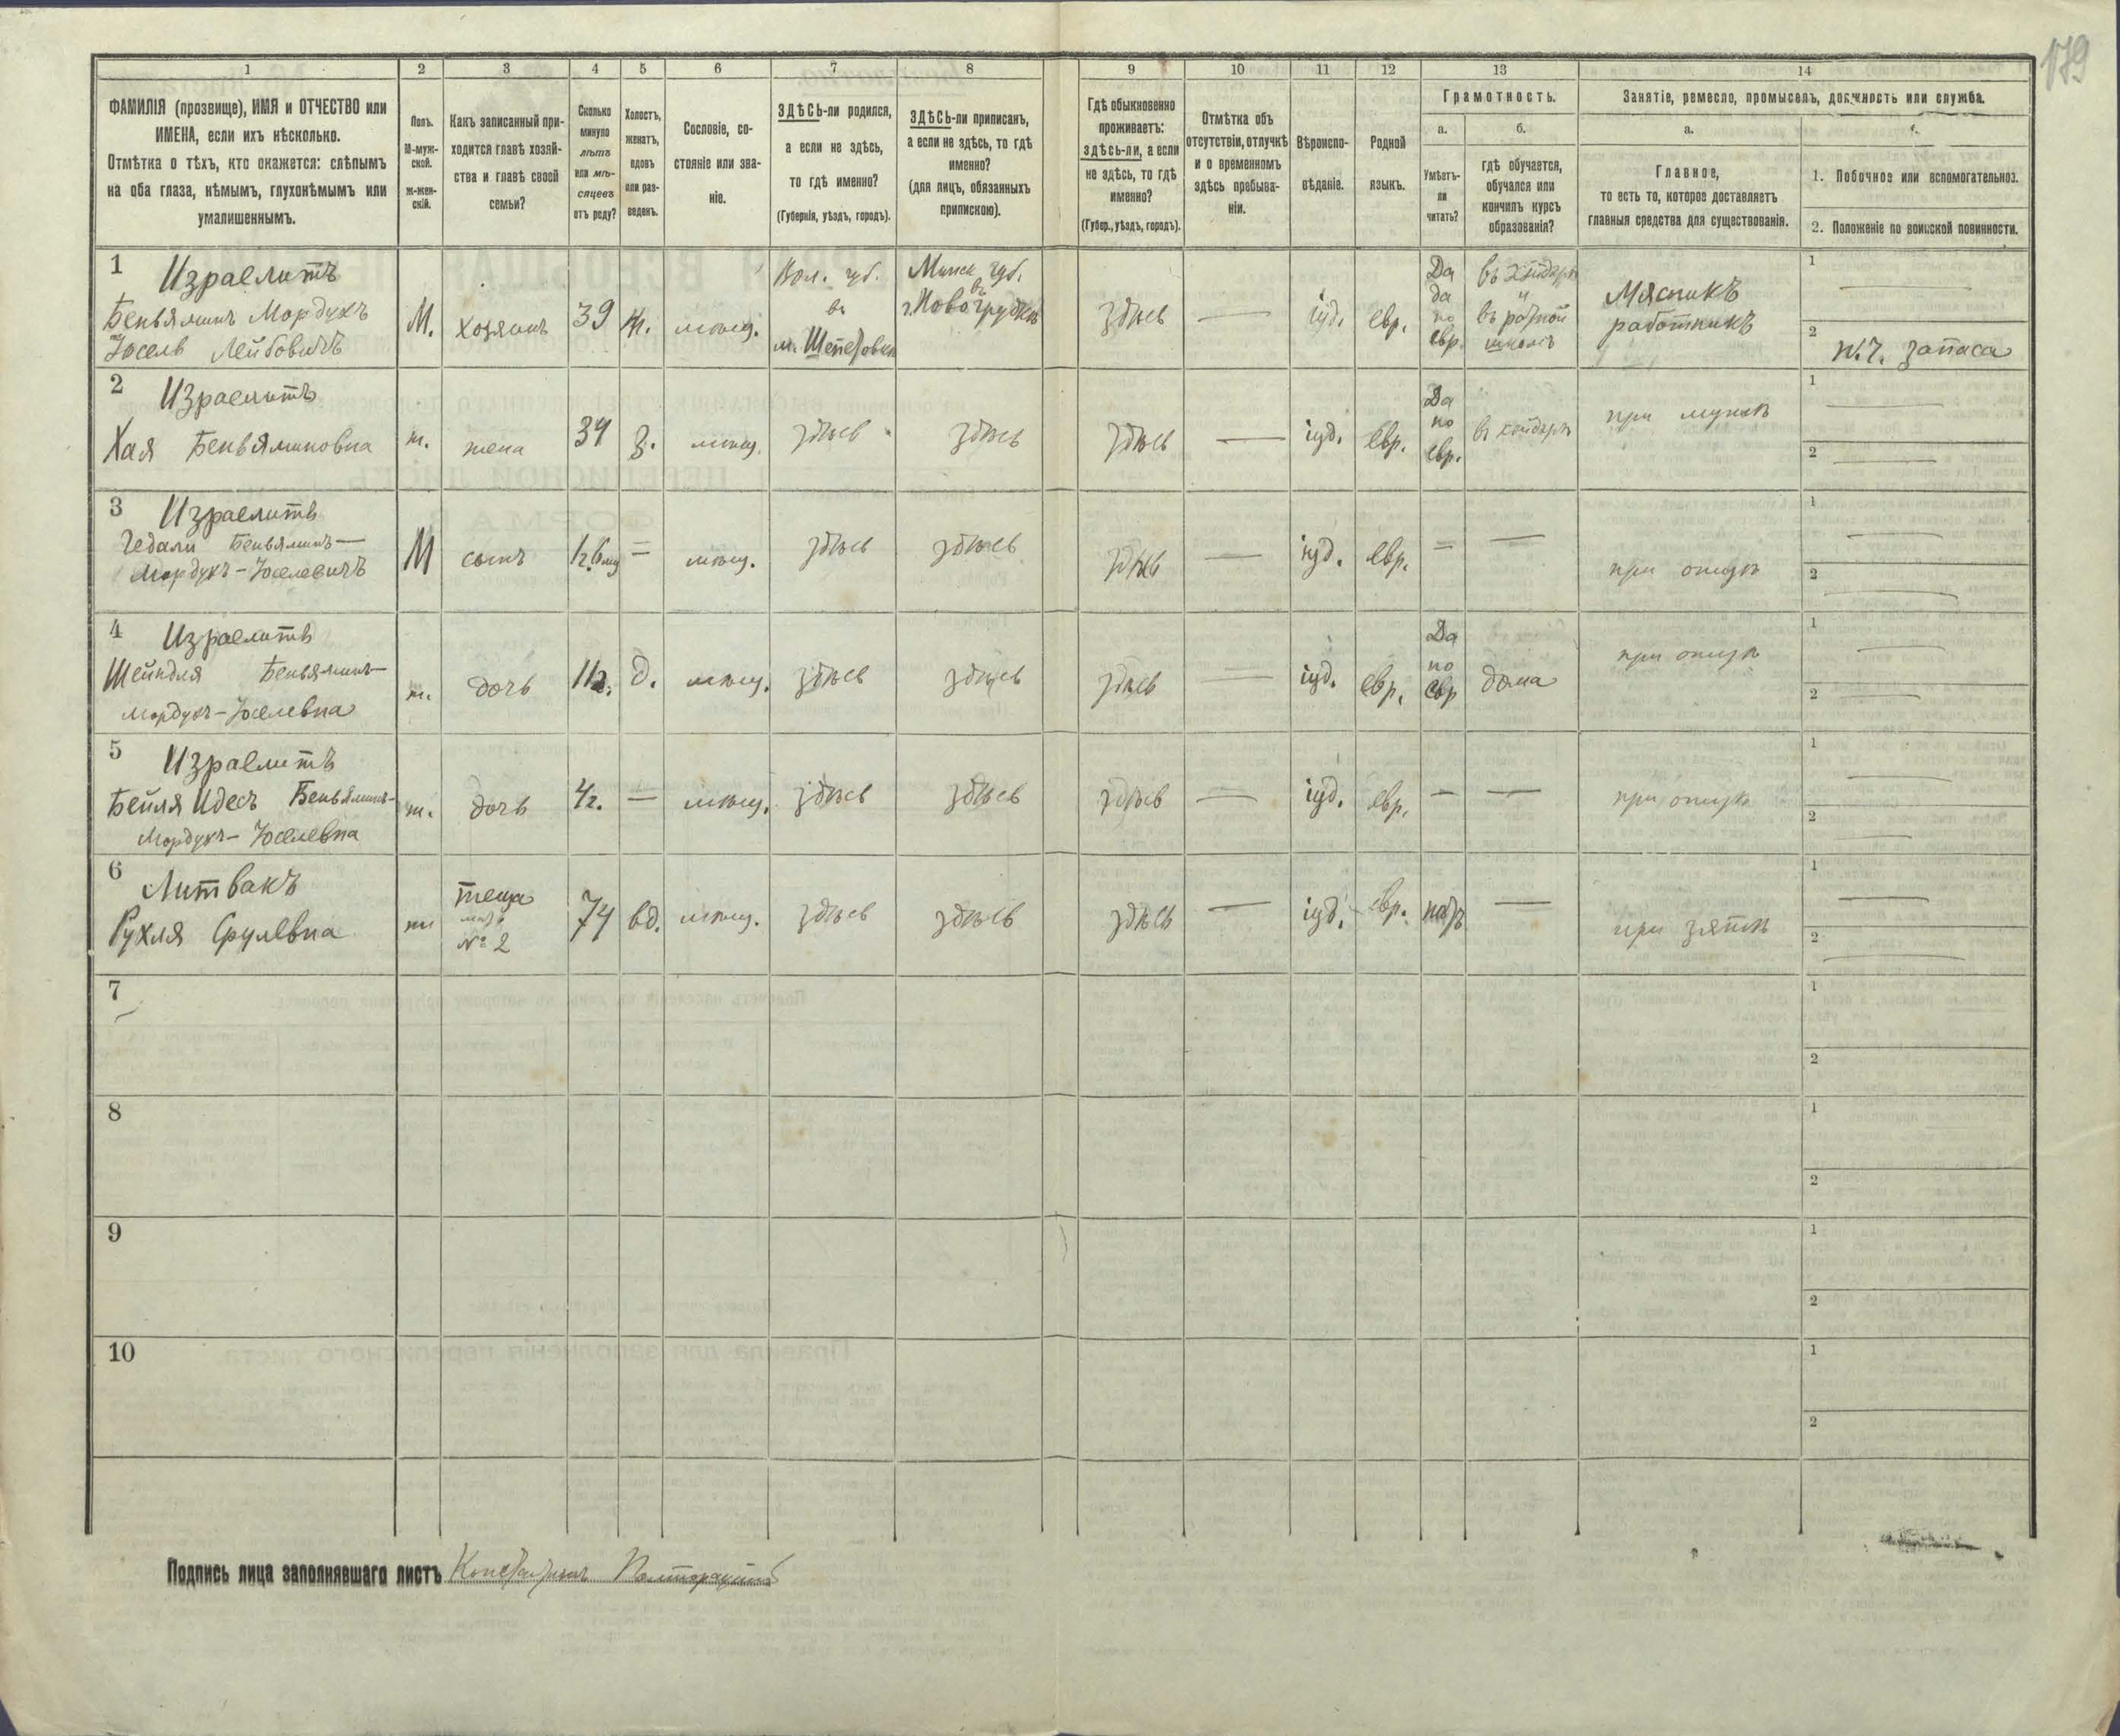 179
1 2 3 4 5 6 7 8 9 10 11 12 13 14
ФАМИЛІЯ (прозвище), ИМЯ и ОТЧЕСТВО или
ИМЕНА, если ихъ нѣсколько.
Отмѣтка о тѣхъ, кто окажется: слѣпымъ
на оба глаза, нѣмымъ, глухонѣмымъ или
умалишеннымъ.
Полъ.
М-муж-
ской.
ж-жен-
скій.
Какъ записанный при-
ходится главѣ хозяй-
ства и главѣ своей
семьи?
Сколько
минуло
лѣтъ
или мѣ-
сяцевъ
отъ роду?
Холостъ,
женатъ,
вдовъ
или раз-
веденъ.
Сословіе, со-
стояніе или зва-
ніе.
ЗДѢСЬ-ли родился,
а если не здѣсь,
то гдѣ именно?
(Губернія, уѣздъ, городъ).
ЗДѢСЬ-ли приписанъ,
а если не здѣсь, то гдѣ
именно?
(для лицъ, обязанныхъ
припискою).
Гдѣ обыкновенно
проживаетъ:
здѣсь-ли, а если
не здѣсь, то гдѣ
именно?
(Губер., уѣздъ, городъ).
Отмѣтка объ
отсутствіи, отлучкѣ
и о временномъ
здѣсь пребыва-
ніи.
Вѣроиспо-
вѣданіе.
Родной
языкъ.
Грамотность.
а.
Умѣетъ-
ли
читать?
б.
гдѣ обучается,
обучался или
кончилъ курсъ
образованія?
Занятіе, ремесло, промыселъ, должность или служба.
а.
Главное,
то есть то, которое доставляетъ
главныя средства для существованія.
1. Побочное или вспомогательное.
2. Положеніе по воинской повинности.
1 Израелитъ
Беньяминъ Мордухъ
Іосель Лейбовичъ
М.
хозяинъ
39
ж.
мѣщ.
Вол. губ.
въ
м. Шепетовкѣ
Минск. губ.
въ
г. Новогрудкѣ
здѣсь
—
іуд.
евр.
Да
да
по
евр.
въ хейдерѣ
и
въ ротной
школѣ
Мясникъ
работникъ
1 —
2 н.ч. запаса
2 Израелитъ
Хая Беньяминовна
ж.
жена
34
з.
мѣщ.
здѣсь
здѣсь
здѣсь
—
іуд.
евр.
Да
по
евр.
въ хейдерѣ
при мужѣ
1 —
2 —
3 Израелитъ
Гедали Беньяминъ—
Мордухъ-Іоселевичъ
М
сынъ
1г. 6 мц
=
мѣщ.
здѣсь
здѣсь
здѣсь
—
іуд.
евр.
—
—
при отцѣ
1 —
2 —
4 Израелитъ
Шейндля Беньяминъ—
Мордухъ-Іоселевна
ж.
дочь
11г.
д.
мѣщ.
здѣсь
здѣсь
здѣсь
—
іуд.
евр.
Да
по
евр
дома
при отцѣ
1 —
2 —
5 Израелитъ
Бейля Идесъ Беньяминъ-
Мордухъ-Іоселевна
ж.
дочь
4г.
—
мѣщ.
здѣсь
здѣсь
здѣсь
—
іуд.
евр.
—
—
при отцѣ
1 —
2 —
6 Литвакъ
Рухля Срулевна
ж
теща
мать
№ 2
74
вд.
мѣщ.
здѣсь
здѣсь
здѣсь
—
іуд.
евр.
нѣтъ
—
при зятѣ
1 —
2 —
7
1
2
8
1
2
9
1
2
10
1
2
Подпись лица заполнявшаго листъ Константинъ